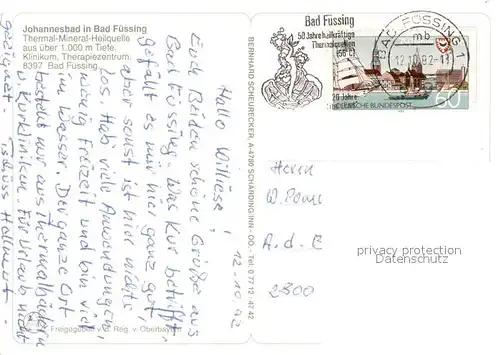 Johannesbad in Bad Füssing
Thermal-Mineral-Heilquelle
aus über 1.000 m Tiefe.
Klinikum, Therapiezentrum.
8397 Bad Füssing
12.10.92
Hallo Williese!
Euch Beiden schöne Grüße aus
Bad Füssing. Was Kur betrifft,
gefällt es mir hier ganz gut,
aber sonst ist hier nichts
los. Hab viele Anwendungen,
wenig Freizeit und bin viel
im Wasser. Der ganze Ort
besteht nur aus Thermalbädern
u. Kurkliniken. Für Urlaub nicht
geeignet. Tschüss
Freigegeben d. Reg. v. Oberbayern
BERNHARD SCHEURECKER, A-4780 SCHÄRDING/INN - OÖ. - Tel. 0 77 12 / 42 42
Bad Füssing
50 Jahre heilkräftige
Thermalquellen
(56°C)
20 Jahre
BAD FÜSSING 1
mb
DEUTSCHE BUNDESPOST
60
Herrn
W.
A. d. E
privacy protection
2800